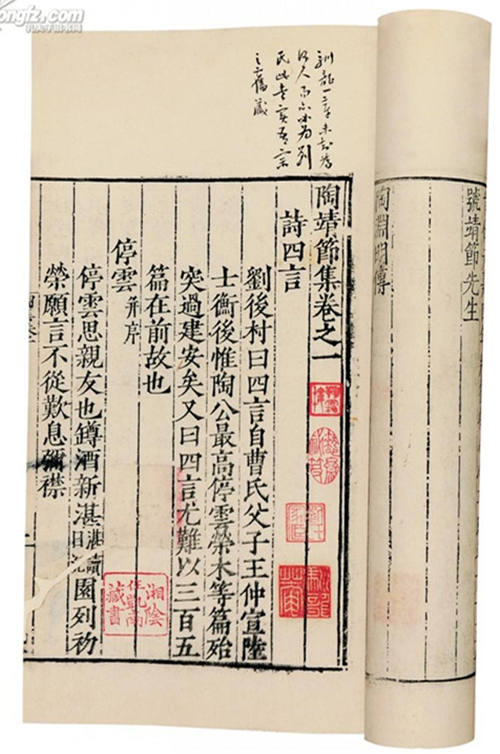 號靖節先生
陶淵明傳
陶靖節集卷之一
詩四言
劉後村曰四言自曹氏父子王仲宣陸
士衡後惟陶公最高停雲榮木等篇殆
突過建安矣又曰四言尤難以三百五
篇在前故也
停雲 并序
停雲思親友也罇酒新湛湛讀曰沉園列初
榮願言不從歎息彌襟
湘陰
任凱南
藏書